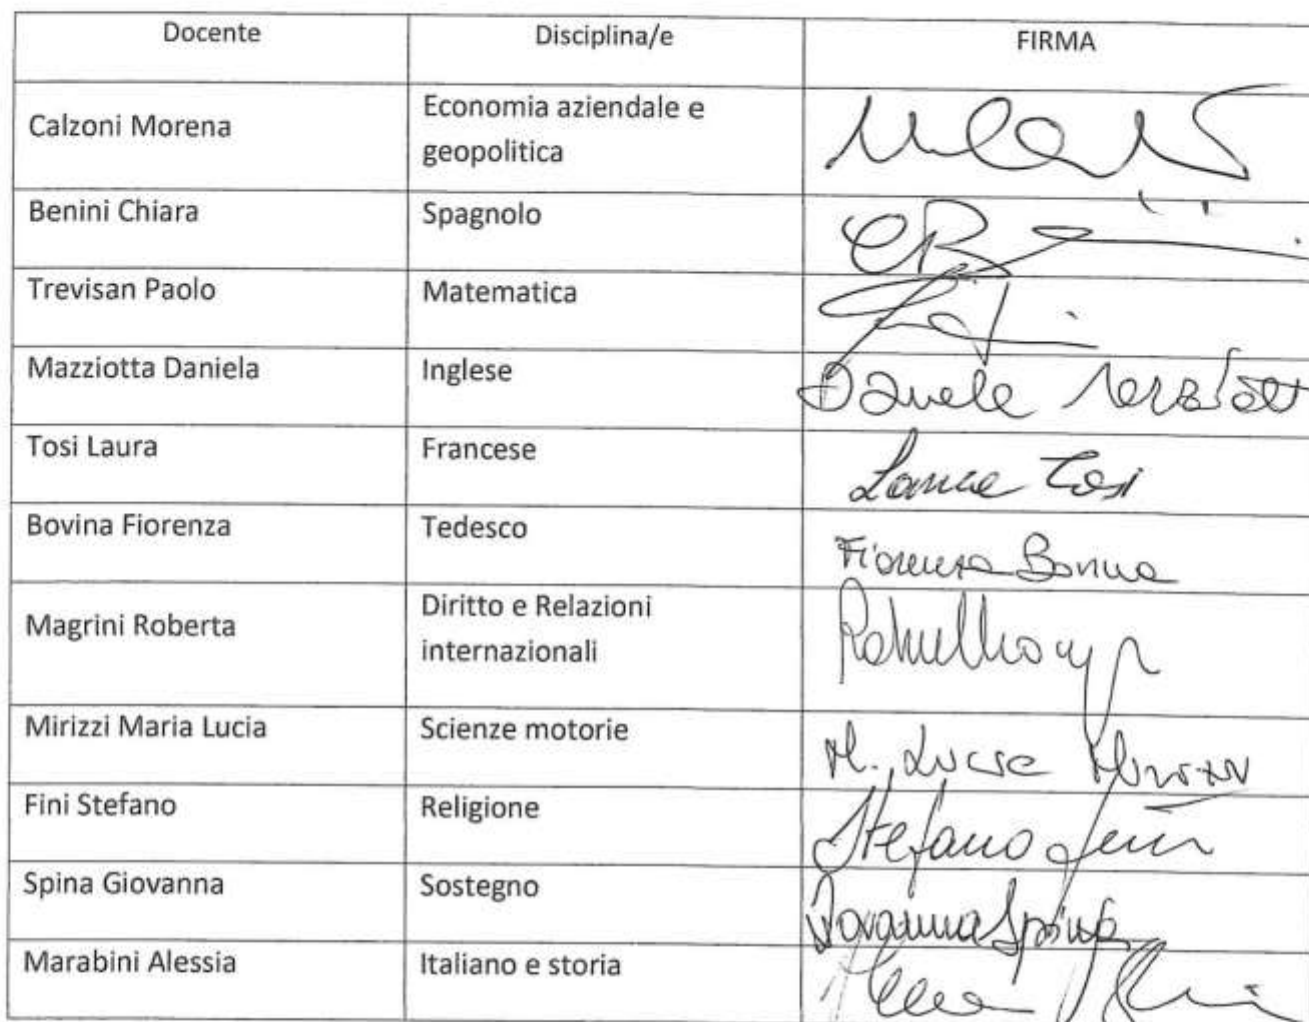 Docente Disciplina/e FIRMA
Calzoni Morena Economia aziendale e
geopolitica
Benini Chiara Spagnolo
Trevisan Paolo Matematica
Mazziotta Daniela Inglese Daniela
Tosi Laura Francese Laura Tosi
Bovina Fiorenza Tedesco Fiorenza Bovina
Magrini Roberta Diritto e Relazioni
internazionali
Mirizzi Maria Lucia Scienze motorie M. Lucia Mirizzi
Fini Stefano Religione Stefano Fini
Spina Giovanna Sostegno Giovanna Spina
Marabini Alessia Italiano e storia